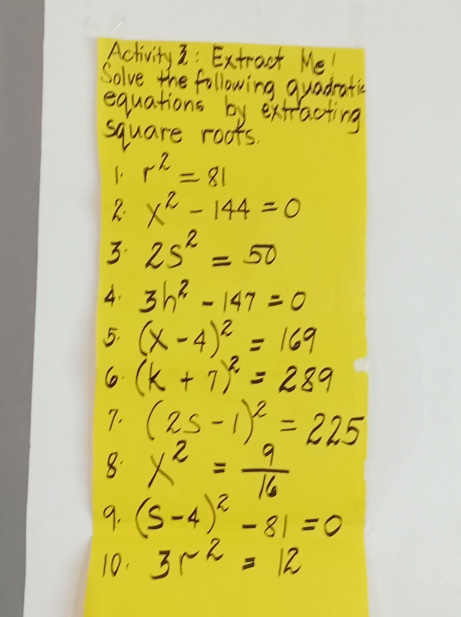 Activity 3: Extract Me!
Solve the following quadratic
equations by extracting
square roots.
1. r² = 81
2. x² - 144 = 0
3. 2s² = 50
4. 3h² - 147 = 0
5. (x - 4)² = 169
6. (k + 7)² = 289
7. (2s - 1)² = 225
8. x² = 9/16
9. (s - 4)² - 81 = 0
10. 3r² = 12